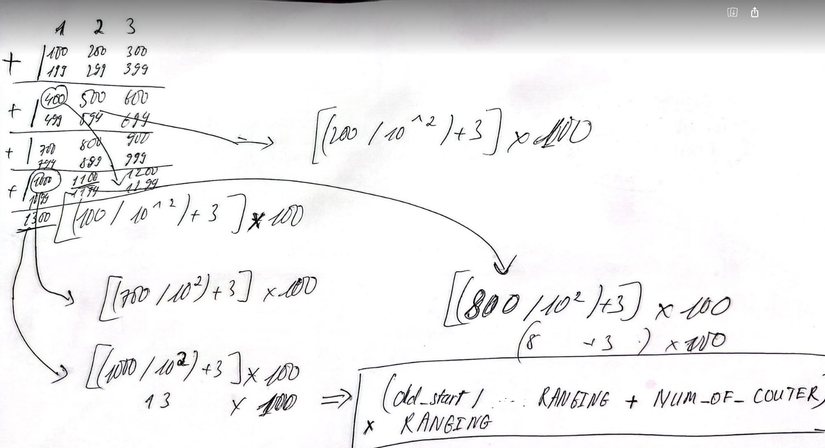 1 2 3
+ 100 200 300
199 299 399
+ 400 500 600
499 594 694
+ 700 800 900
799 899 999
+ 1000 1100 1200
1300
[(200 / 10^2) + 3] x 100
[(100 / 10^2) + 3] x 100
[(700 / 10²) + 3] x 100
[(800 / 10²) + 3] x 100
(8 + 3 ) x 100
[(1000 / 10²) + 3] x 100
13 x 100 ⇒
(old_start / .... RANGING + NUM_OF_COUTER)
x RANGING